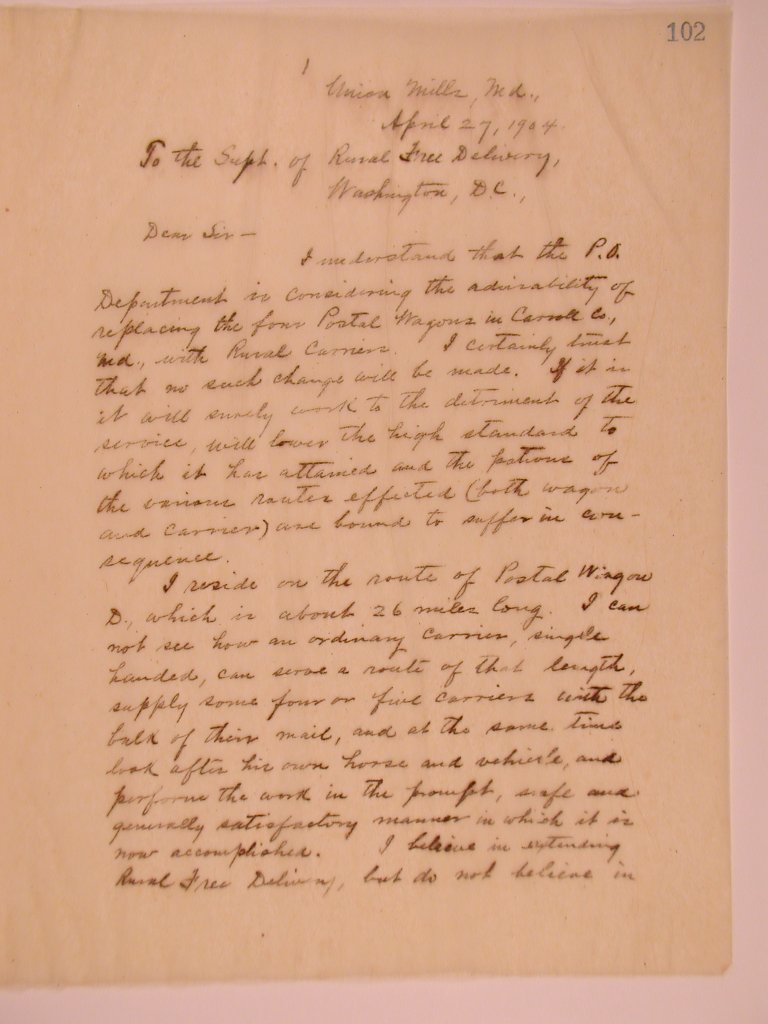 102
1
Union Mills, Md.,
April 27, 1904.
To the Supt. of Rural Free Delivery,
Washington, D.C.,
Dear Sir —
I understand that the P.O.
Department is considering the advisability of
replacing the four Postal Wagons in Carroll Co.,
Md., with Rural Carriers. I certainly trust
that no such change will be made. If it is
it will surely work to the detriment of the
service, will lower the high standard to
which it has attained and the patrons of
the various routes effected (both wagon
and carrier) are bound to suffer in con-
sequence.
I reside on the route of Postal Wagon
D., which is about 26 miles long. I can
not see how an ordinary carrier, single
handed, can serve a route of that length,
supply some four or five carriers with the
bulk of their mail, and at the same time
look after his own horse and vehicle, and
perform the work in the prompt, safe and
generally satisfactory manner in which it is
now accomplished. I believe in extending
Rural Free Delivery, but do not believe in